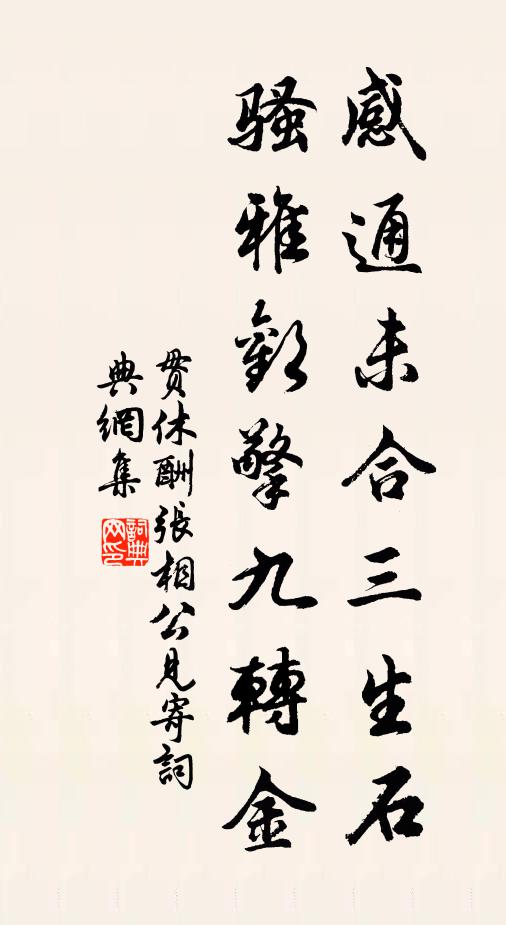 感通未合三生石
騷雅歡擎九轉金
貫休酬張相公見寄詞
典網集
詞典
网印